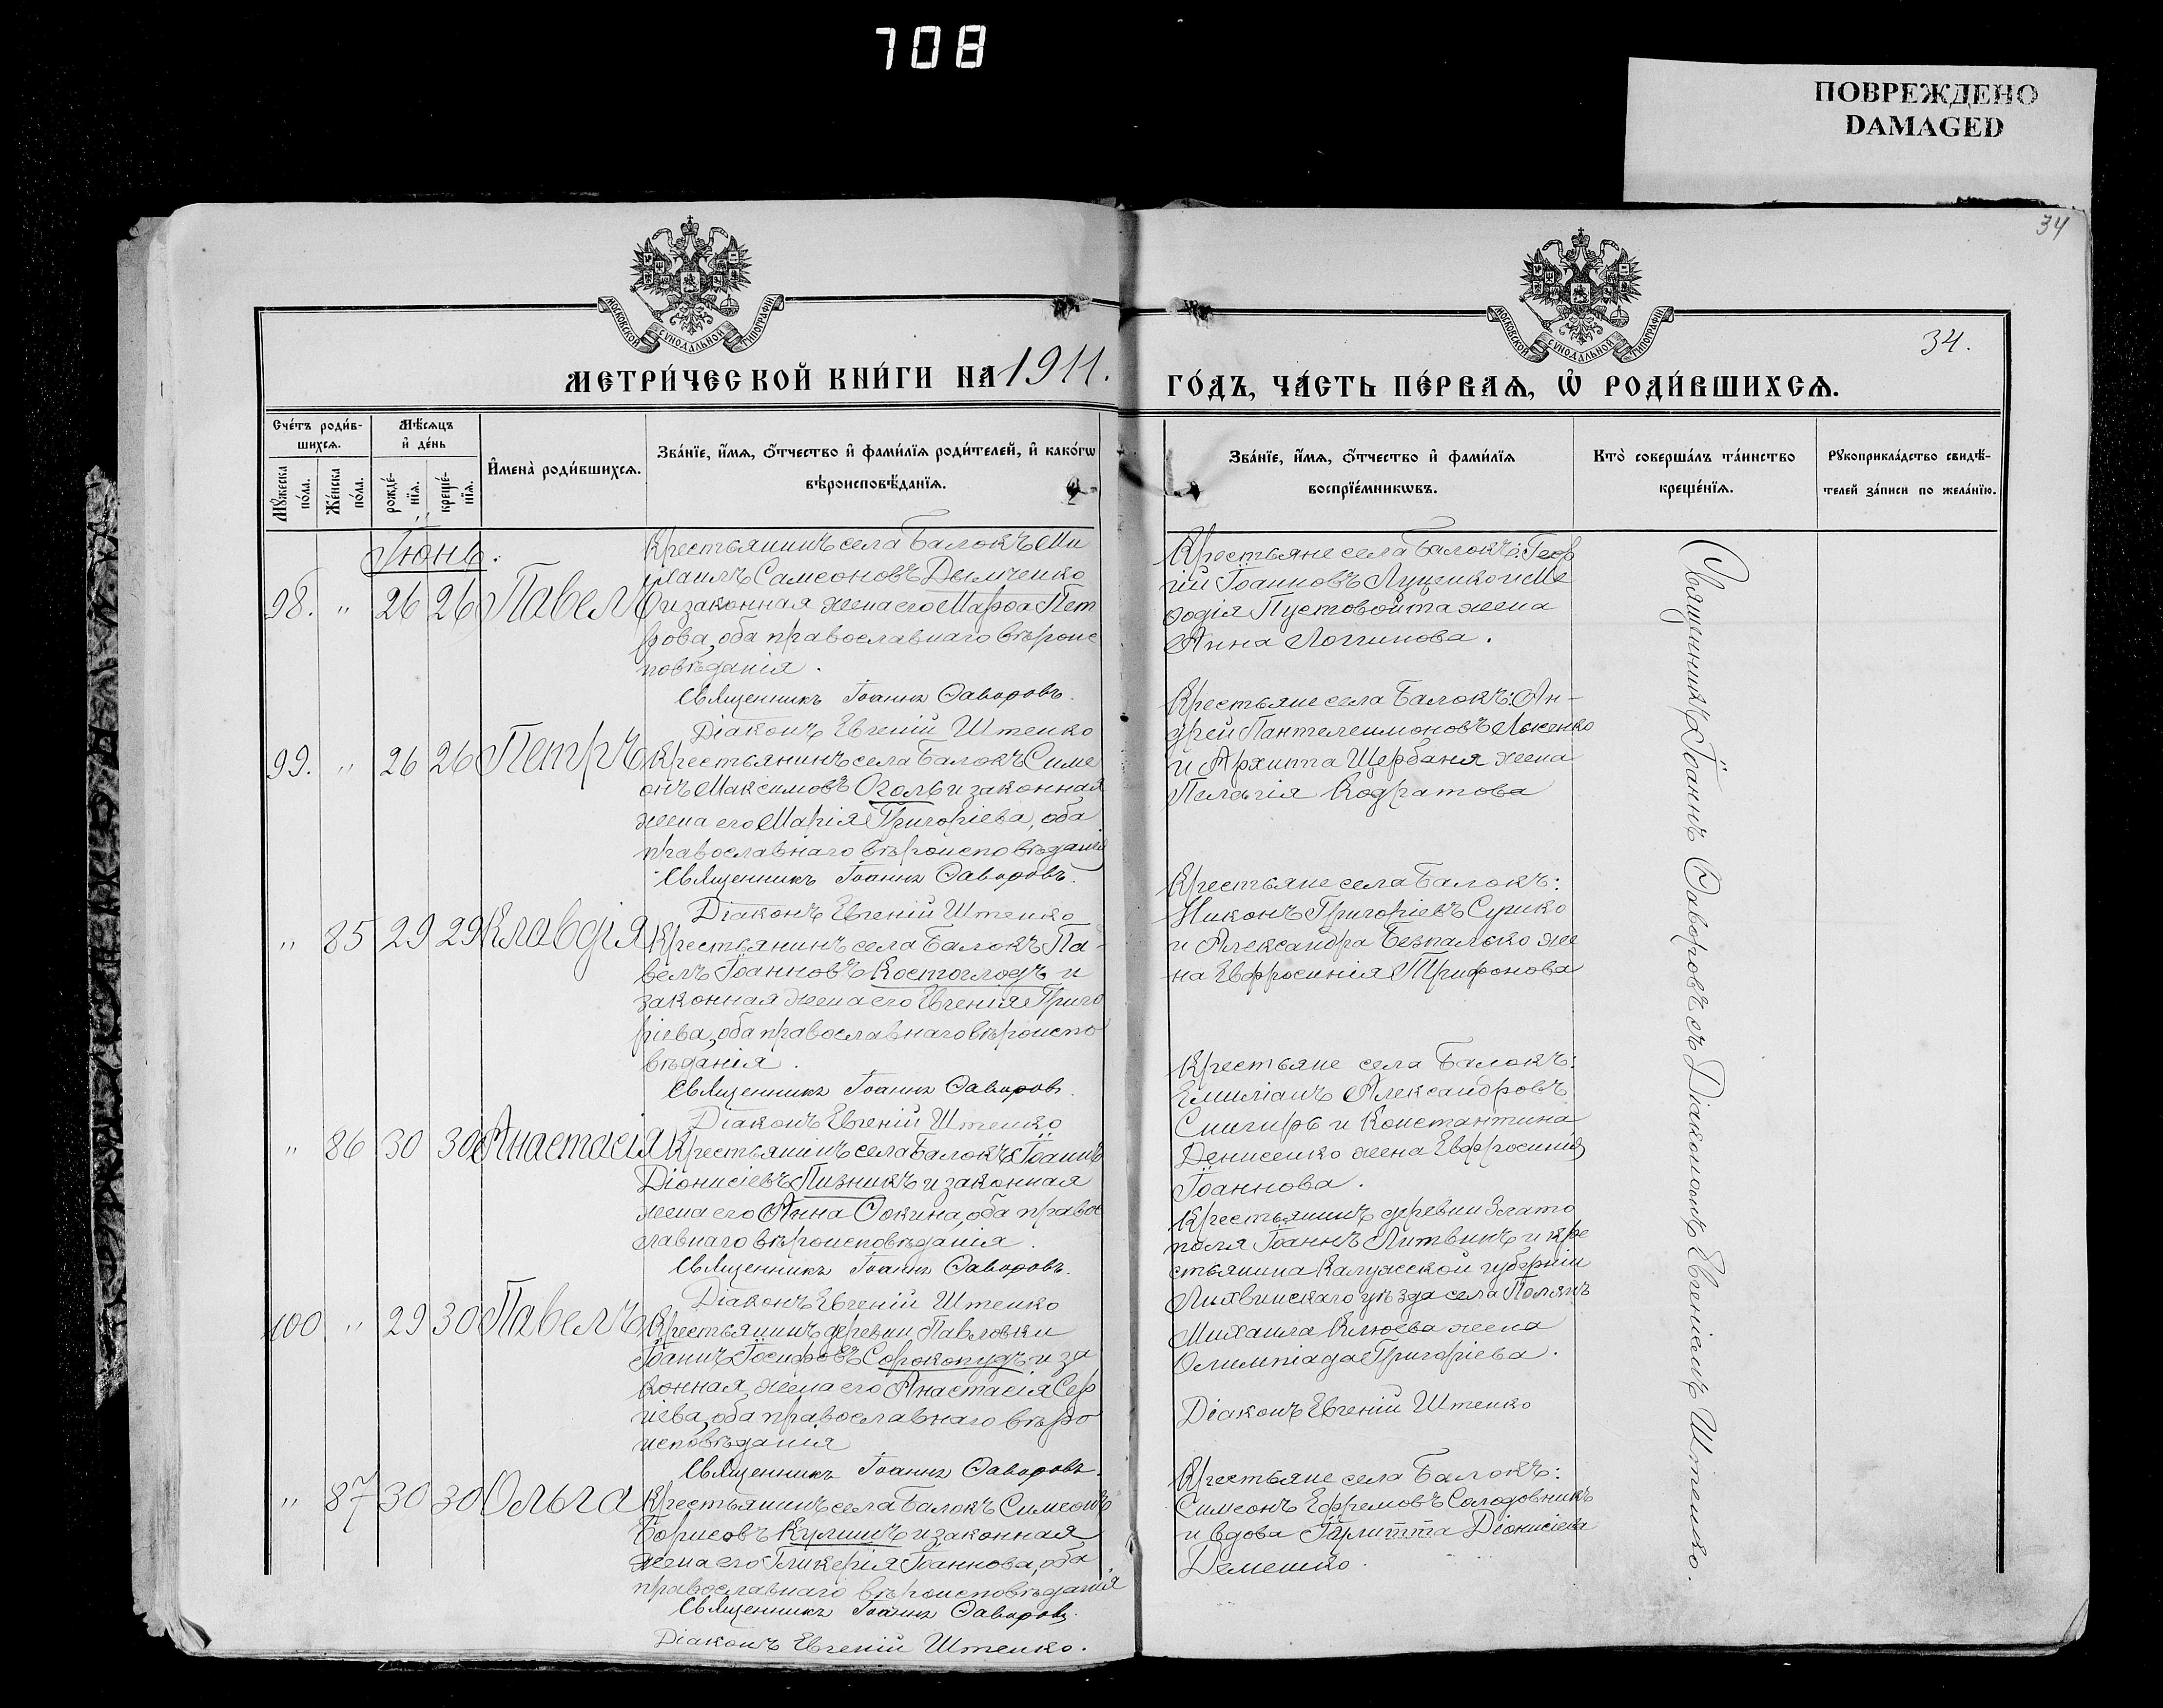 708
ПОВРЕЖДЕНО
DAMAGED
34
МОСКОВСКОЙ СѴНОДАЛЬНОЙ ТИПОГРАФІИ
МОСКОВСКОЙ СѴНОДАЛЬНОЙ ТИПОГРАФІИ
34.
МЕТРИ́ЧЕСКОЙ КНИ́ГИ НА 1911.
ГО́ДЪ, ЧА́СТЬ ПЕ́РВАѦ, Ѡ҆ РОДИ́ВШИХСѦ.
Сче́тъ роди́в-
шихсѧ.
Мꙋ́жеска по́ла.
Же́нска по́ла.
Мѣ́сѧцъ
и҆ де́нь
рожде́-
нїѧ.
креще́-
нїѧ.
И҆мена̀ роди́вшихсѧ.
Зва́нїе, и҆́мѧ, ѻ҆́тчество и҆ фами́лїѧ роди́телей, и҆ како́гѡ
вѣроисповѣ́данїѧ.
Зва́нїе, и҆́мѧ, ѻ҆́тчество и҆ фами́лїѧ
воспрїе́мникѡвъ.
Кто̀ соверша́лъ та́инство
креще́нїѧ.
Рꙋкоприкла́дство свидѣ́-
телей за́писи по жела́нїю.
Іюнь.
98. " 26 26 Павелъ
Крестьянинъ села Балокъ Ми
хаилъ Самсоновъ Дымченко
и законная жена его Марѳа Пет
рова, оба православнаго вѣроис
повѣданія.
Священникъ Іоаннъ Ѳаворовъ.
Діаконъ Евгеній Штепко
Крестьяне села Балокъ: Геор
гій Іоанновъ Луценко и Ме
ѳодія Пустовойта жена
Анна Логгинова.
99. " 26 26 Петръ
Крестьянинъ села Балокъ Симе
онъ Максимовъ Оголь и законная
жена его Марія Григоріева, оба
православнаго вѣроисповѣданія
Священникъ Іоаннъ Ѳаворовъ.
Діаконъ Евгеній Штепко
Крестьяне села Балокъ: Ан-
дрей Пантелеимоновъ
и Архипа Щербаня жена
Пелагія Кодратова
" 85 29 29 Клавдія
Крестьянинъ села Балокъ Па-
велъ Іоанновъ Костоглодъ и
законная жена его Евгенія Григо
ріева, оба православнаго вѣроиспо
вѣданія.
Священникъ Іоаннъ Ѳаворовъ.
Діаконъ Евгеній Штепко
Крестьяне села Балокъ:
Никонъ Григоріевъ Сушко
и Александра Безпалько же
на Евфросинія Трифонова
" 86 30 30 Анастасія
Крестьянинъ села Балокъ Іоаннъ
Діонисіевъ Пизникъ и законная
жена его Анна Ѳокина, оба правос
лавнаго вѣроисповѣданія.
Священникъ Іоаннъ Ѳаворовъ.
Діаконъ Евгеній Штепко
Крестьяне села Балокъ:
Емиліанъ Александровъ
Снигирь и Константина
Денисенко жена Евфросинія
Іоаннова.
100 " 29 30 Павелъ
Крестьянинъ деревни Павловки
Іоаннъ Іосифовъ Сорокопудъ и за
конная жена его Анастасія Сер
гіева, оба православнаго вѣро
исповѣданія
Священникъ Іоаннъ Ѳаворовъ.
Крестьянинъ деревни Злато
поля Іоаннъ Литвинъ и кре
стьянина Калужской губерніи
Лихвинскаго уѣзда села Полянъ
Михаила Клюева жена
Олимпіада Григоріева.
Діаконъ Евгеній Штепко
" 87 30 30 Ольга
Крестьянинъ села Балокъ Симеонъ
Борисовъ Кулишъ и законная
жена его Гликерія Іоаннова, оба
православнаго вѣроисповѣданія
Священникъ Іоаннъ Ѳаворовъ.
Діаконъ Евгеній Штепко.
Крестьяне села Балокъ:
Симеонъ Ефремовъ Солодовникъ
и вдова Іулитта Діонисіева
Демешко.
Священникъ Іоаннъ Ѳаворовъ съ Діакономъ Евгеніемъ Штепко.